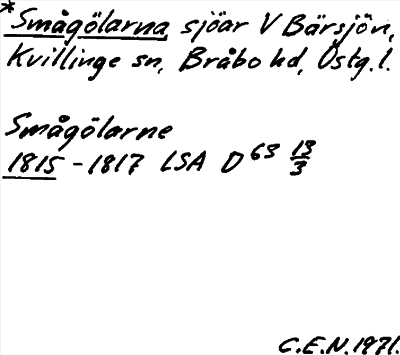 *Smågölarna sjöar V Bärsjön,
Kvillinge sn, Bråbo hd, Östg.l.
Smågölarne
1815-1817 LSA D 63 13/3
C.E.N. 1971.